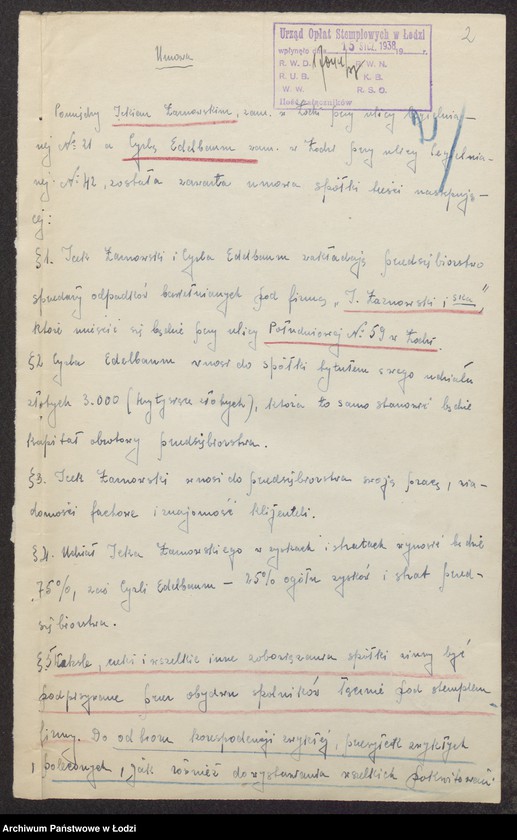 2
Urząd Opłat Stemplowych w Łodzi
wpłynęło dnia 15 STYCZ. 1938 19 r.
R. W. D. R. W. N.
R. U. B. K. B.
W. W. R. S. O.
Ilość załączników
Umowa
Pomiędzy Ickiem Żarnowskim, zam. w Łodzi przy ulicy Cegielnia-
nej № 21 a Cyrlą Edelbaum zam. w Łodzi przy ulicy Cegielnia-
nej № 42, została zawarta umowa spółki treści następują-
cej:
§1. Icek Żarnowski i Cyrla Edelbaum zakładają przedsiębiorstwo
sprzedaży odpadków bawełnianych pod firmą „I. Żarnowski i Ska",
które mieścić się będzie przy ulicy Południowej № 59 w Łodzi.
§2 Cyrla Edelbaum wnosi do spółki tytułem swego udziału
złotych 3.000 (trzy tysiące złotych), która to suma stanowić będzie
kapitał obrotowy przedsiębiorstwa.
§3. Icek Żarnowski wnosi do przedsiębiorstwa swoją pracę, wia-
domości fachowe i znajomość klijenteli.
§4. Udział Icka Żarnowskiego w zyskach i stratach wynosić będzie
75%, zaś Cyrli Edelbaum – 25% ogółu zysków i strat przed-
siębiorstwa.
§5 Weksle, czeki i wszelkie inne zobowiązania spółki winny być
podpisywane przez obydwu spólników łącznie pod stemplem
firmy. Do odbioru korespondencji zwykłej, przesyłek zwykłych
i poleconych, jak również do wystawiania wszelkich pokwitowań
Archiwum Państwowe w Łodzi